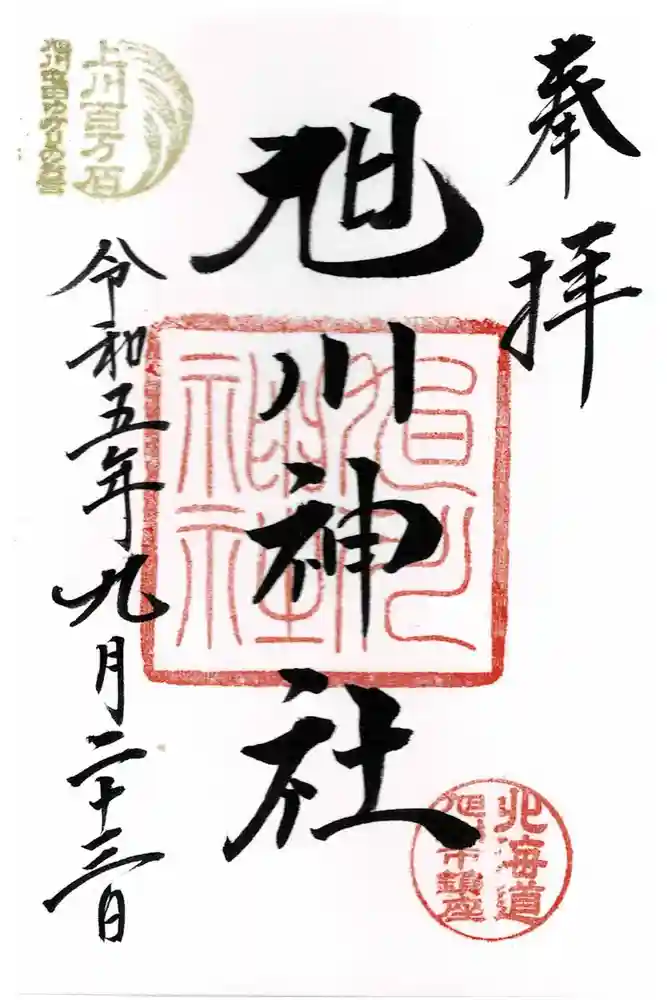 奉拝
旭川神社
旭川神社
北海道
旭川市鎮座
上川百万石
令和五年九月二十三日